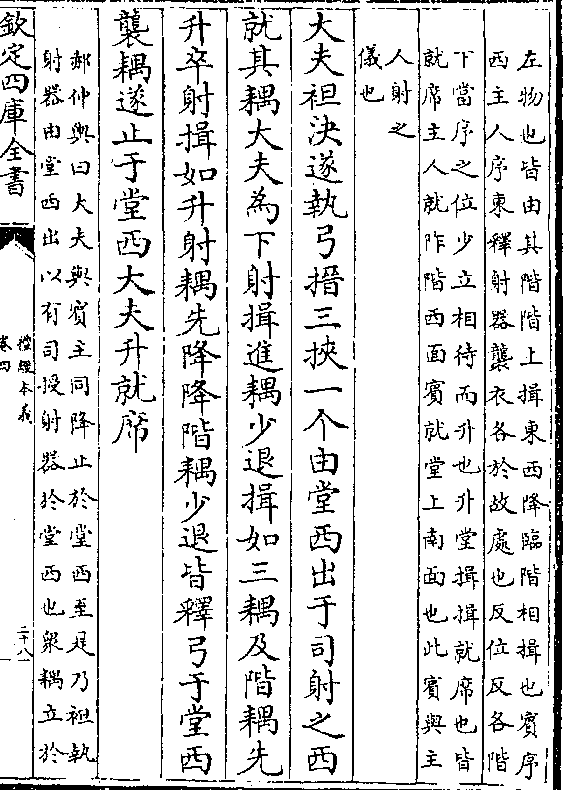 左物也皆由其階階上揖東西降臨階相揖也賓序
西主人序東釋射器襲衣各於故處也反位反各階
下當序之位少立相待而升也升堂揖揖就席也皆
就席主人就阼階西面賓就堂上南面也此賓與主
人射之
儀也
大夫袒決遂執弓搢三挾一个由堂西出于司射之西
就其耦大夫為下射揖進耦少退揖如三耦及階耦先
升卒射揖如升射耦先降降階耦少退皆釋弓于堂西
襲耦遂止于堂西大夫升就席
郝仲輿曰大夫與賓主同降止於堂西至是乃袒執
射器由堂西出以有司授射器於堂西也衆耦立於
欽定四庫全書
禮經本義
卷四
二十八